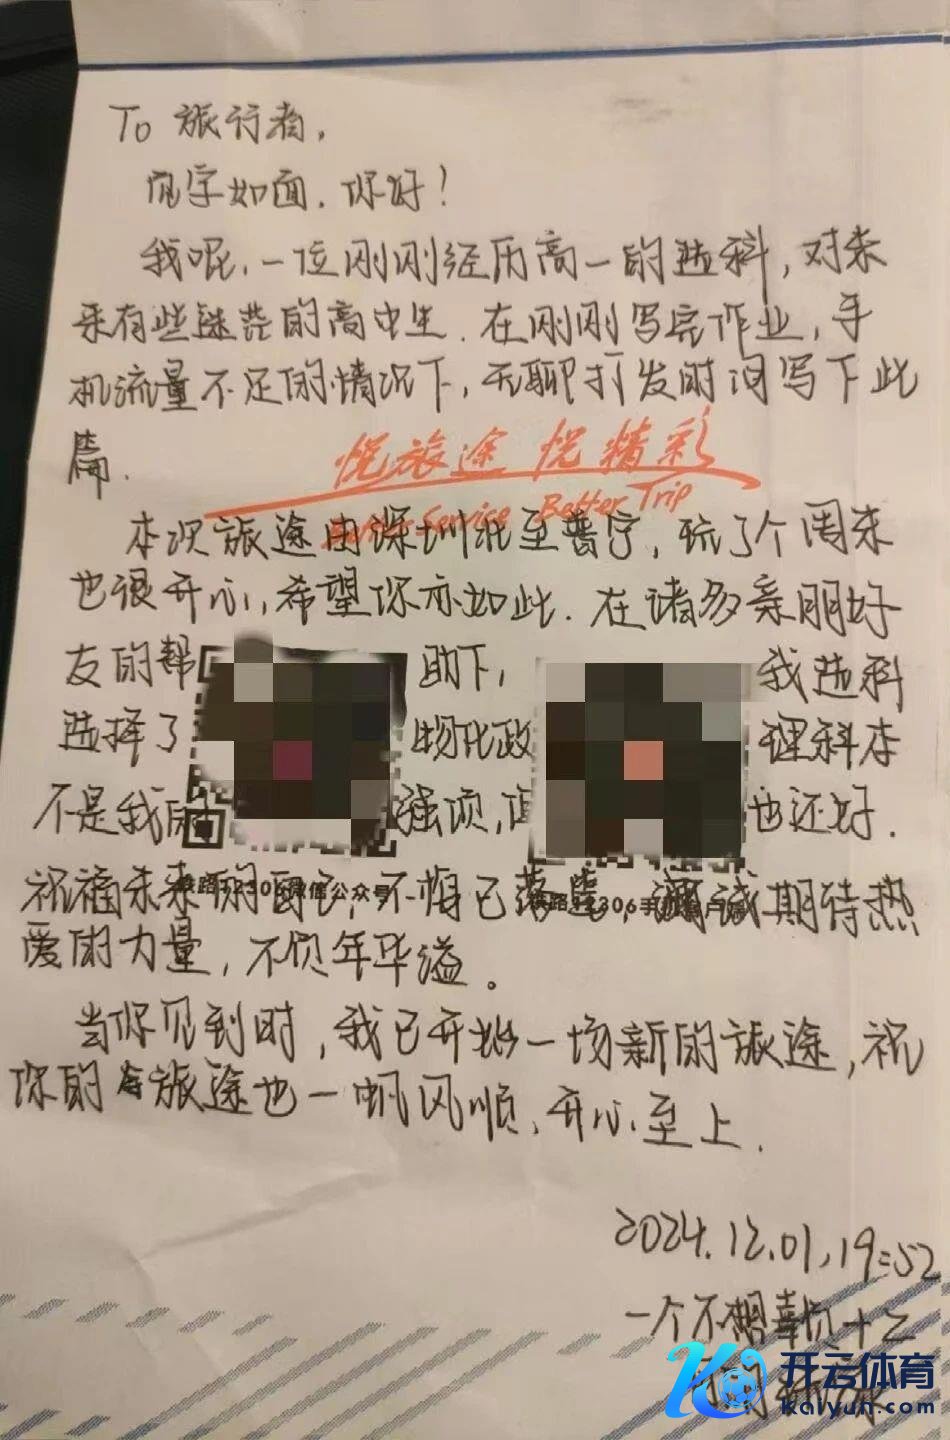 To 旅行者,
见字如面. 你好!
我呢,一位刚刚经历高一的选科,对未
来有些迷茫的高中生. 在刚刚写完作业,手
机流量不足的情况下,无聊打发时间写下此
篇.
悦旅途 悦精彩
Service Better Trip
本次旅途由深圳北至普宁,玩了个周末
也很开心,希望你亦如此. 在诸多亲朋好
友的帮助下,我选科
选择了物化政 理科本
不是我的强项, 也还好.
祝福未来的自己,不悔已落笔,满诚期待热
爱的力量,不负年华溢。
铁路12306微信公众号
铁路12306手机客户端
当你见到时,我已开始一场新的旅途,祝
你的旅途也一帆风顺,开心至上.
2024.12.01,19:52
一个不想辜负十二
开云体育
kaiyun.com